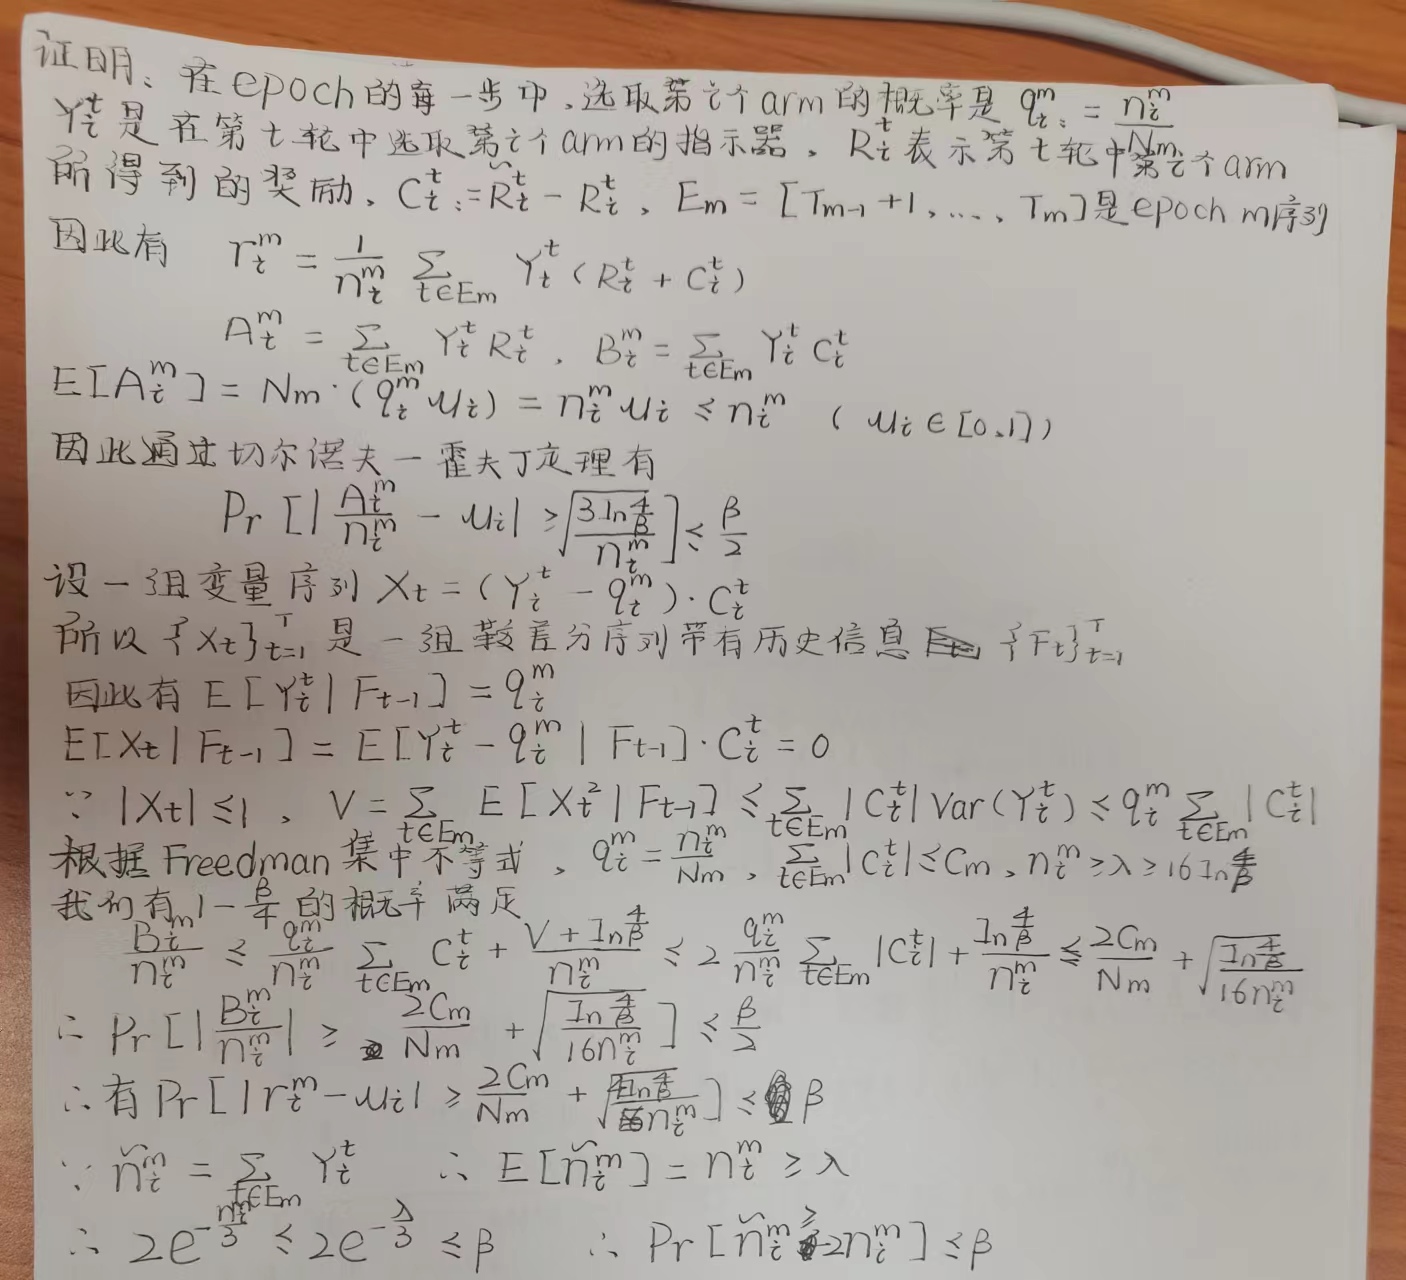 证明：在epoch的每一步中，选取第i个arm的概率是 q_i^m := n_i^m / N_m
Y_i^t 是在第t轮中选取第i个arm的指示器，R_i^t 表示第t轮中第i个arm
所得到的奖励，C_i^t := R̃_i^t - R_i^t，E_m = [T_{m-1}+1, ..., T_m]是epoch m序列
因此有 r_i^m = 1/n_i^m Σ_{t∈E_m} Y_i^t (R_i^t + C_i^t)
A_i^m = Σ_{t∈E_m} Y_i^t R_i^t，B_i^m = Σ_{t∈E_m} Y_i^t C_i^t
E[A_i^m] = N_m·(q_i^m u_i) = n_i^m u_i ≤ n_i^m (u_i∈[0,1])
因此通过切尔诺夫-霍夫丁定理有
Pr[|A_i^m/n_i^m - u_i| ≥ √(3ln(4/β)/n_i^m)] ≤ β/2
设一组变量序列 X_t = (Y_i^t - q_i^m)·C_i^t
所以{X_t}_{t=1}^T 是一组鞅差分序列带有历史信息 {F_t}_{t=1}^T
因此有 E[Y_i^t|F_{t-1}] = q_i^m
E[X_t|F_{t-1}] = E[Y_i^t - q_i^m|F_{t-1}]·C_i^t = 0
∵ |X_t| ≤ 1，V = Σ_{t∈E_m} E[X_t²|F_{t-1}] ≤ Σ_{t∈E_m} |C_i^t| Var(Y_i^t) ≤ q_i^m Σ_{t∈E_m} |C_i^t|
根据Freedman集中不等式，q_i^m = n_i^m/N_m，Σ_{t∈E_m}|C_i^t| ≤ C_m，n_i^m ≥ λ ≥ 16ln(4/β)
我们有1-β/4的概率满足
B_i^m/n_i^m ≤ q_i^m/n_i^m Σ_{t∈E_m} C_i^t + (V+ln(4/β))/n_i^m ≤ 2 q_i^m/n_i^m Σ_{t∈E_m} |C_i^t| + ln(4/β)/n_i^m ≤ 2C_m/N_m + √(ln(4/β)/16n_i^m)
∴ Pr[|B_i^m/n_i^m| ≥ 2C_m/N_m + √(ln(4/β)/16n_i^m)] ≤ β/2
∴有 Pr[|r_i^m - u_i| ≥ 2C_m/N_m + √(4ln(4/β)/n_i^m)] ≤ β
∵ ñ_i^m = Σ_{t∈E_m} Y_i^t ∴ E[ñ_i^m] = n_i^m ≥ λ
∴ 2e^{-n_i^m/3} ≤ 2e^{-λ/3} ≤ β ∴ Pr[ñ_i^m ≥ 2n_i^m] ≤ β